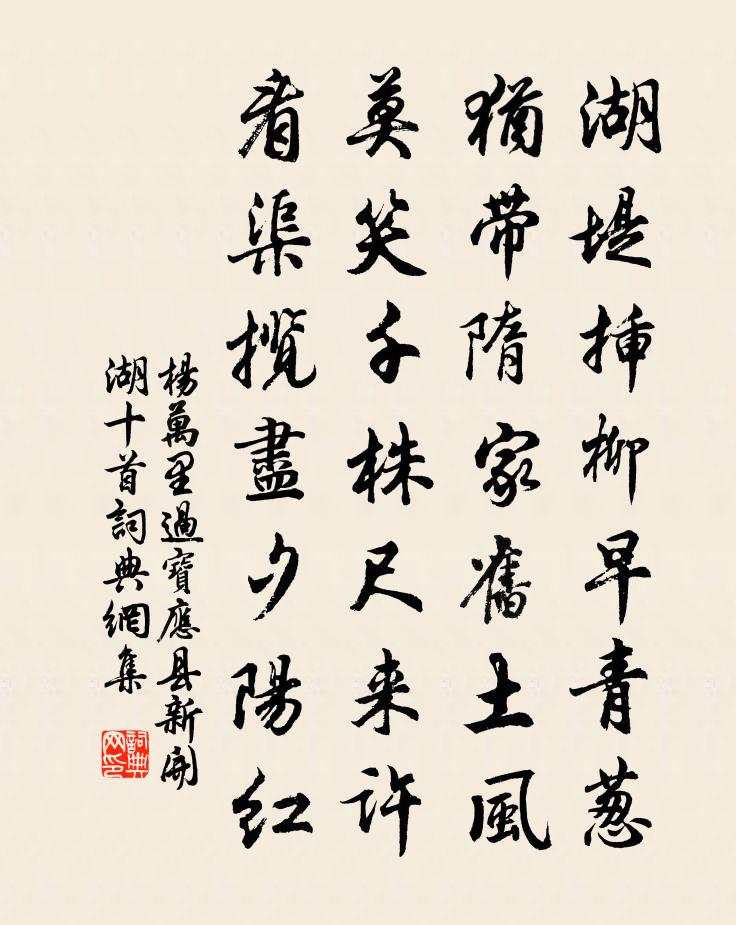 湖堤插柳早青葱
猶帶隋家舊土風
莫笑千株尺来許
看渠攬盡夕陽紅
楊萬里過寶應县新開
湖十首詞典網集
詞典
网印